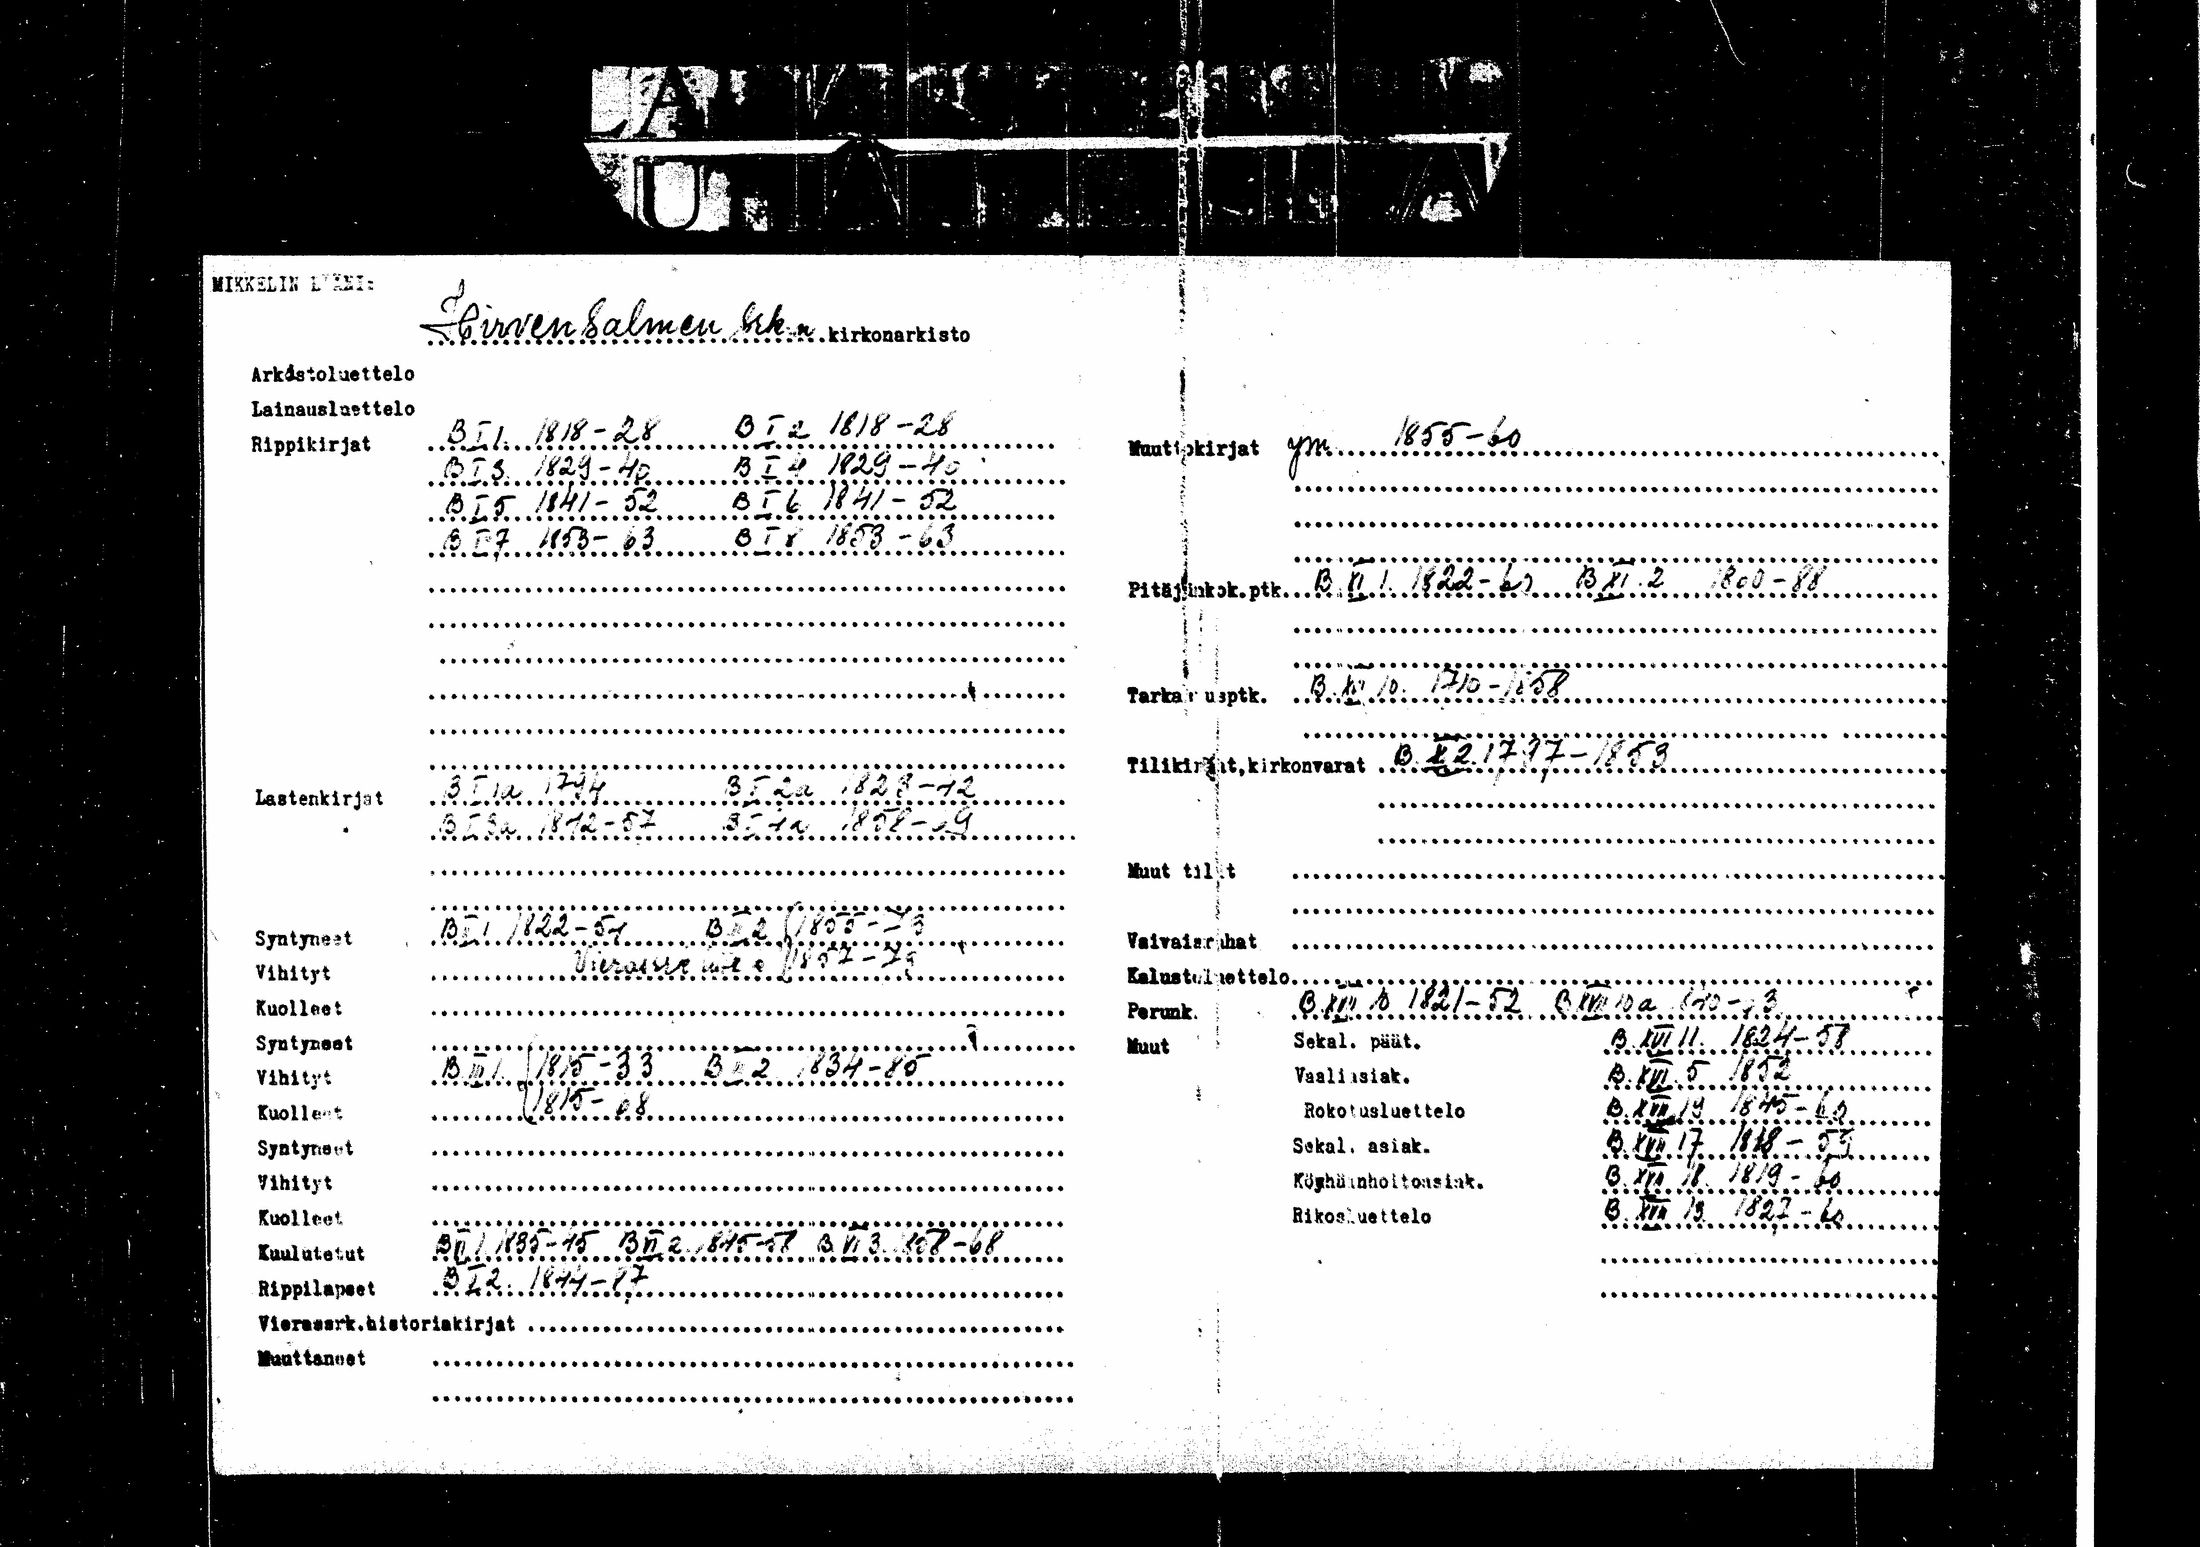 MIKKELIN LÄÄNI:
Hirvensalmen srk:n kirkonarkisto
Arkistoluettelo
Lainausluettelo
Rippikirjat B I 1. 1818-28 B I 2 1818-28
B I 3. 1829-40 B I 4 1829-40
B I 5 1841-52 B I 6 1841-52
B I 7 1853-63 B I 8 1853-63
Lastenkirjat B I 1a 1794 B I 2a 1823-42
B I 3a 1842-57 B I 4a 1858-
Syntyneet B II 1 1822-54 B II 2 1855-73
Vihityt 1857-79
Kuolleet
Syntyneet
Vihityt B III 1. 1815-33 B III 2 1834-85
Kuolleet 1815-
Syntyneet
Vihityt
Kuolleet
Kuulutetut B VI 1. 1835-45 B VI 2. 1845-58 B VI 3. 1858-68
Rippilapset 2. 1844-87
Vierassrk.historiakirjat
Muuttaneet
Muuttokirjat ym. 1855-60
Pitäjänkok.ptk. B XI 1. 1822-60 B XI. 2 1800-88
Tarkastusptk. 10. 1710-1858
Tilikirjat,kirkonvarat B. X 2. 1797-1853
Muut tilit
Vaivaisrahat
Kalustoluettelo
Perunk. B XVII 10 1821-52 B XVII 10a
Muut Sekal. päät. B. XVI 11. 1824-58
Vaaliasiak. B. XVI. 5 1852
Rokotusluettelo B. XVII 19 1845-60
Sekal. asiak. B. XVII 17 1818-59
Köyhäinhoitoasiak. B. XVII 18. 1819-60
Rikosluettelo B. XVII 13. 1827-60